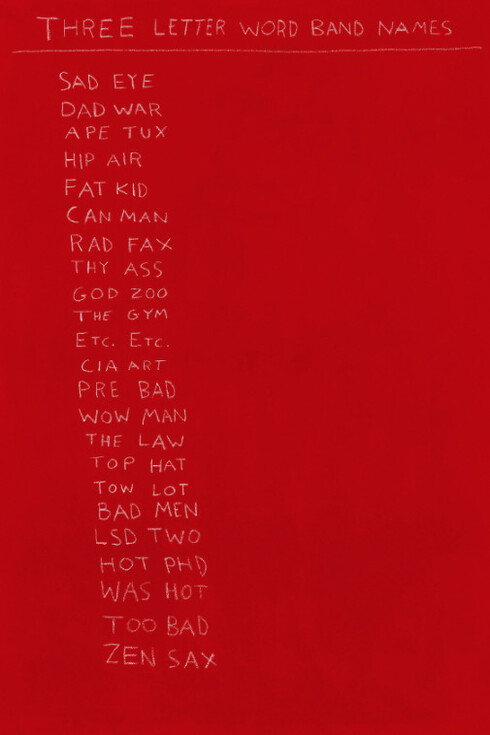 THREE LETTER WORD BAND NAMES
SAD EYE
DAD WAR
APE TUX
HIP AIR
FAT KID
CAN MAN
RAD FAX
THY ASS
GOD ZOO
THE GYM
ETC. ETC.
CIA ART
PRE BAD
WOW MAN
THE LAW
TOP HAT
TOW LOT
BAD MEN
LSD TWO
HOT PHD
WAS HOT
TOO BAD
ZEN SAX